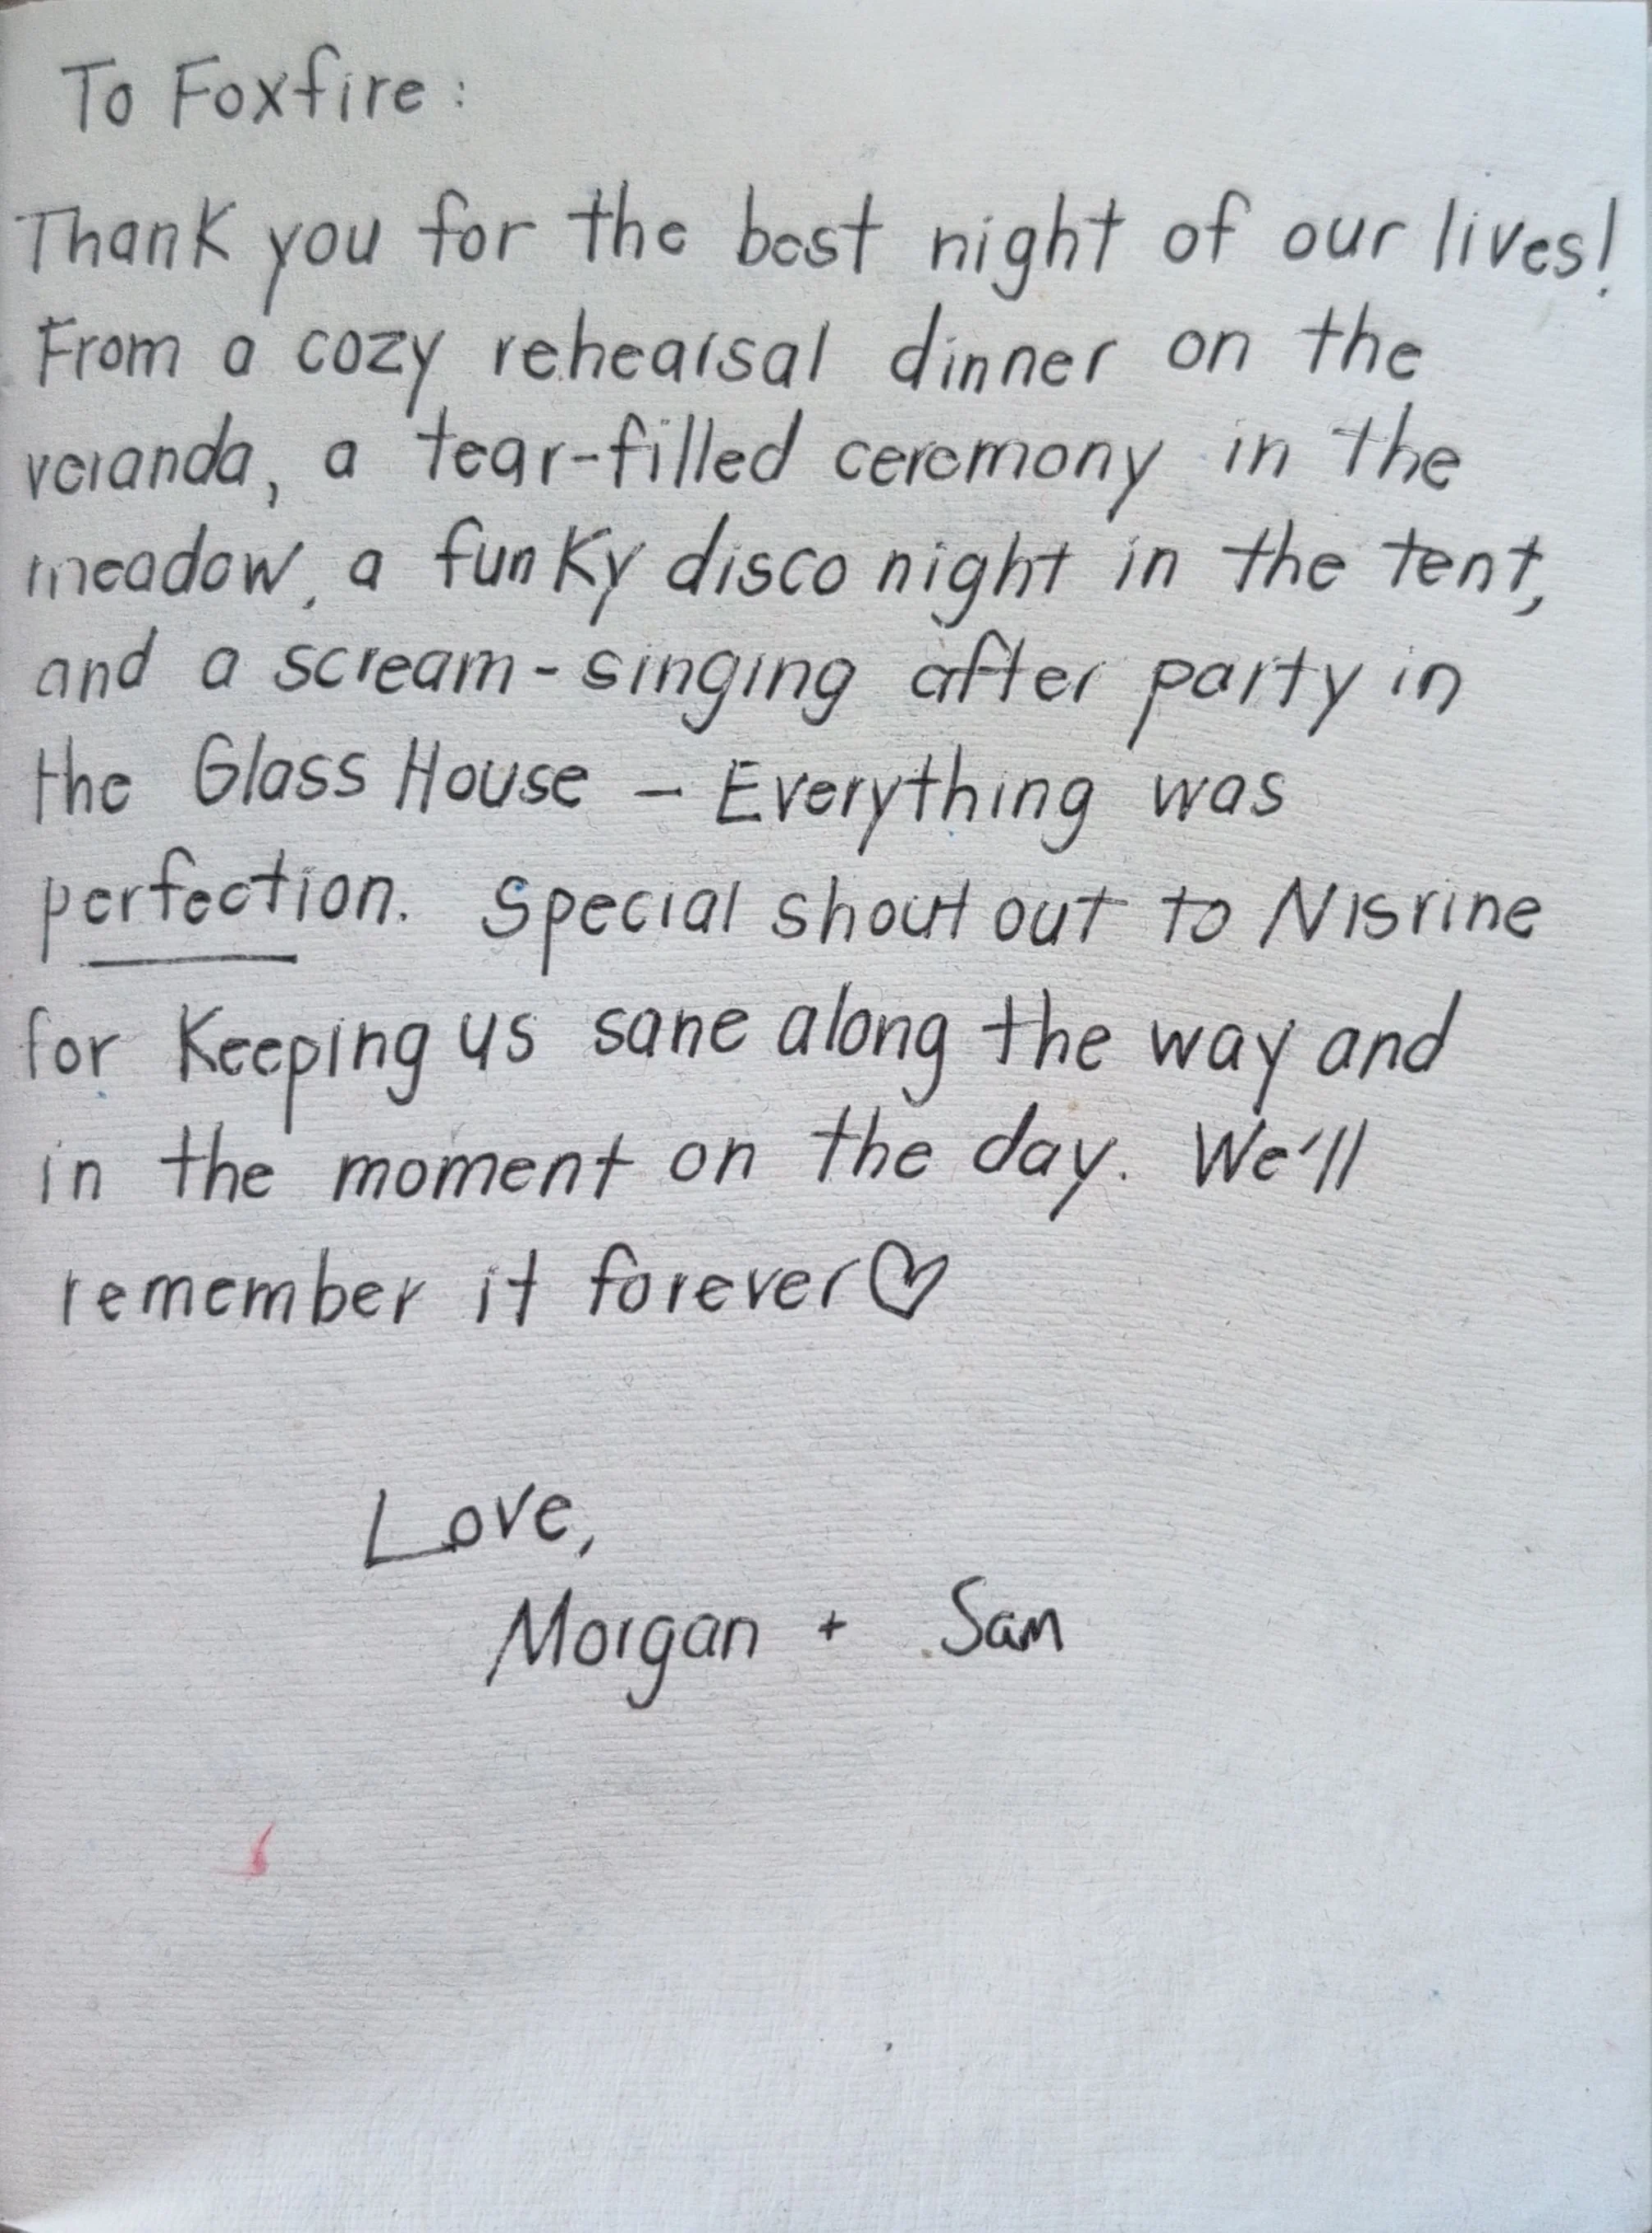 To Foxfire:
Thank you for the best night of our lives!
From a cozy rehearsal dinner on the
veranda, a tear-filled ceremony in the
meadow, a funky disco night in the tent,
and a scream-singing after party in
the Glass House – Everything was
perfection. Special shout out to Nisrine
for keeping us sane along the way and
in the moment on the day. We'll
remember it forever♡
Love,
Morgan + Sam